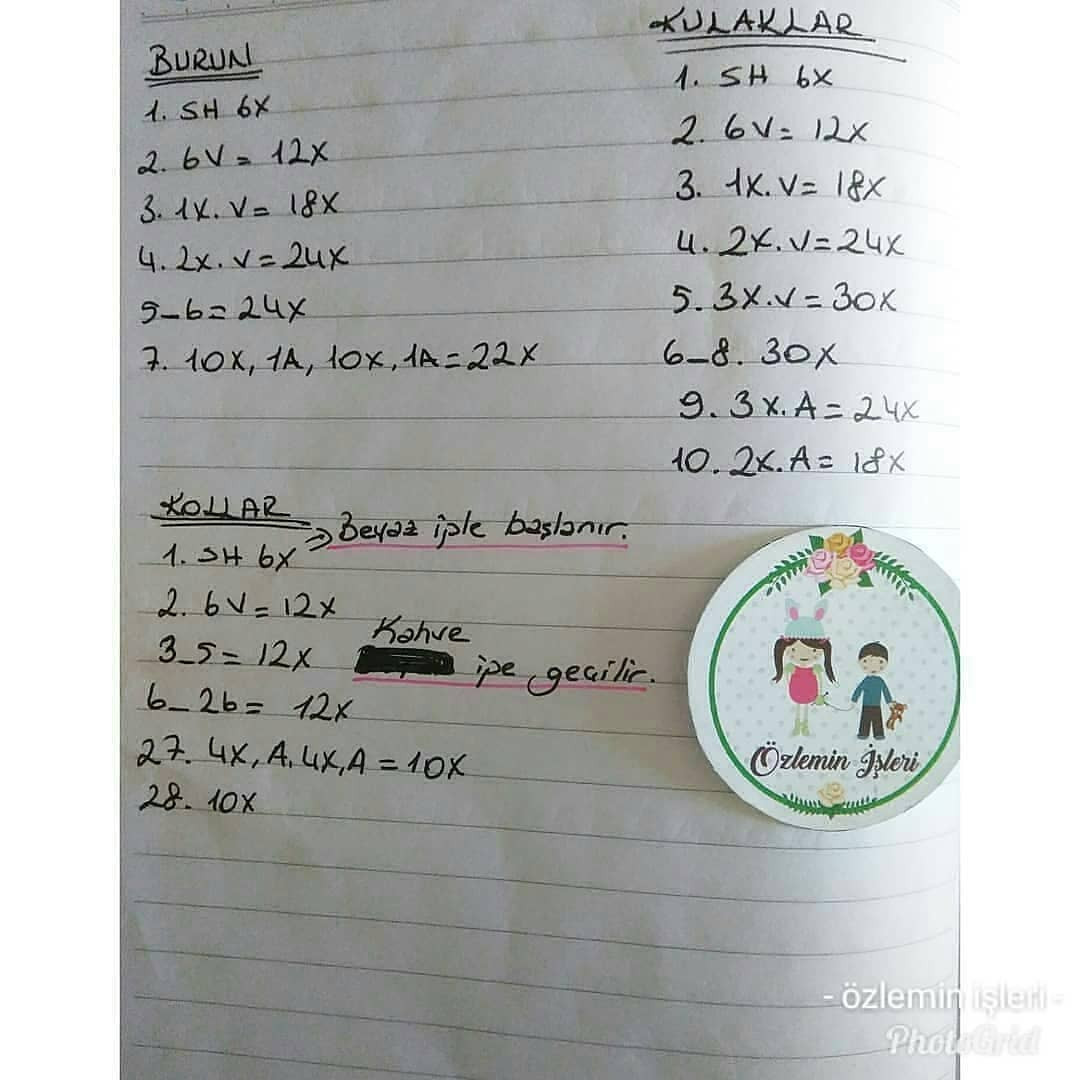 BURUN
1. SH 6X
2. 6V = 12X
3. 1X. V = 18X
4. 2X. V = 24X
5-6 = 24X
7. 10X, 1A, 10X, 1A = 22X
KULAKLAR
1. SH 6X
2. 6V = 12X
3. 1X. V = 18X
4. 2X. V = 24X
5. 3X. V = 30X
6-8. 30X
9. 3X. A = 24X
10. 2X. A = 18X
KOLLAR
Beyaz iple başlanır.
1. SH 6X
2. 6V = 12X
3-5 = 12X
Kahve
ipe geçilir.
6-26 = 12X
27. 4X, A, 4X, A = 10X
28. 10X
Özlemin İşleri
- özlemin işleri -
PhotoGrid